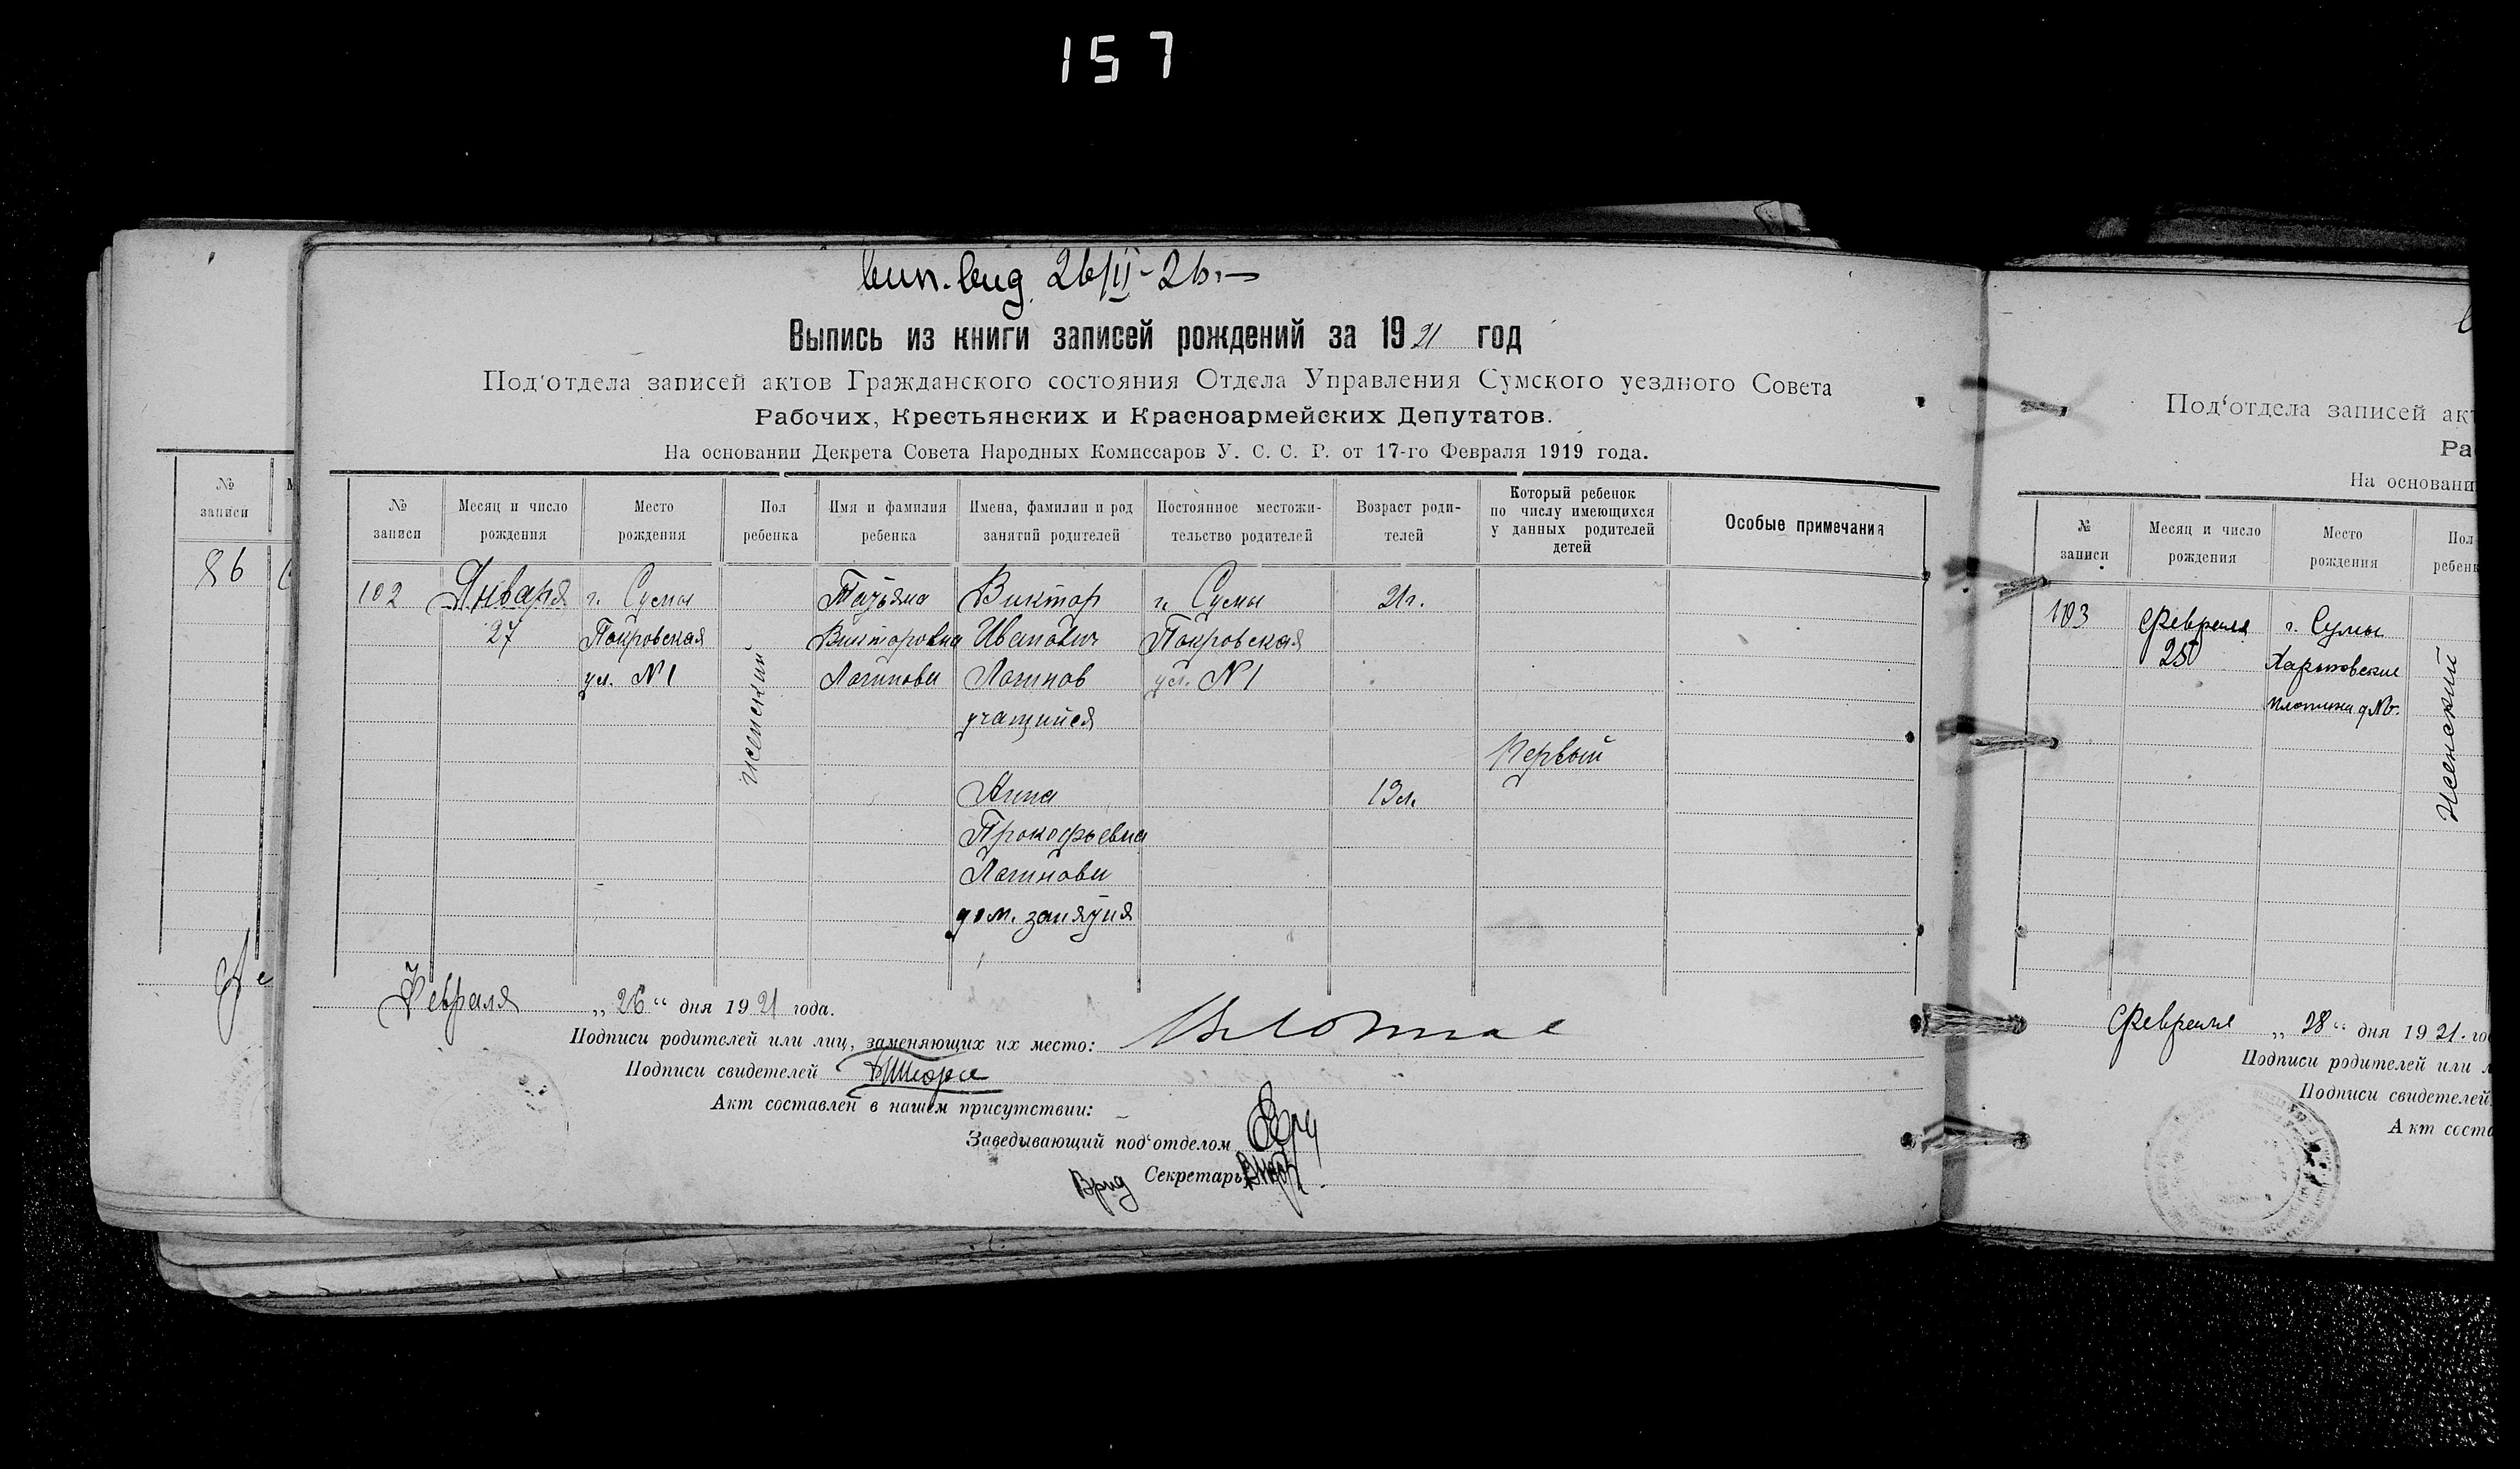 157
вып. выд. 26/II-21.—
Выпись из книги записей рождений за 1921 год
Под'отдела записей актов Гражданского состояния Отдела Управления Сумского уездного Совета
Рабочих, Крестьянских и Красноармейских Депутатов.
На основании Декрета Совета Народных Комиссаров У. С. С. Р. от 17-го Февраля 1919 года.
№ записи
Месяц и число рождения
Место рождения
Пол ребенка
Имя и фамилия ребенка
Имена, фамилии и род занятий родителей
Постоянное местожительство родителей
Возраст родителей
Который ребенок по числу имеющихся у данных родителей детей
Особые примечания
102
Января
27
г. Сумы
Покровская
ул. N 1
женский
Татьяна
Викторовна
Логинова
Виктор
Иванович
Логинов
учащийся
Анна
Прокофьевна
Логинова
дом. занятия
г. Сумы
Покровская
ул. N 1
21г.
19л.
Первый
Февраля „26“ дня 1921 года.
Подписи родителей или лиц, заменяющих их место:
Подписи свидетелей
Акт составлен в нашем присутствии:
Заведывающий под'отделом
Врид Секретарь
№
записи
86
Под'отдела записей акт
Ра
На основани
№ записи
Месяц и число рождения
Место рождения
Пол
ребенк
103
Февраля
25
г. Сумы
Харьковская
плотина
женский
Февраля „28“ дня 1921. го
Подписи родителей или л
Подписи свидетелей
Акт соста